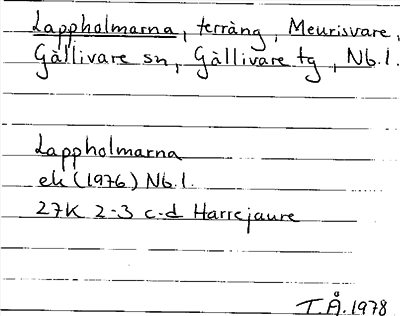 Lappholmarna, terräng, Meurisvare,
Gällivare sn, Gällivare tg, Nb.l.
Lappholmarna
ek (1976) Nb.l.
27K 2-3 c-d Harrejaure
T.Å. 1978